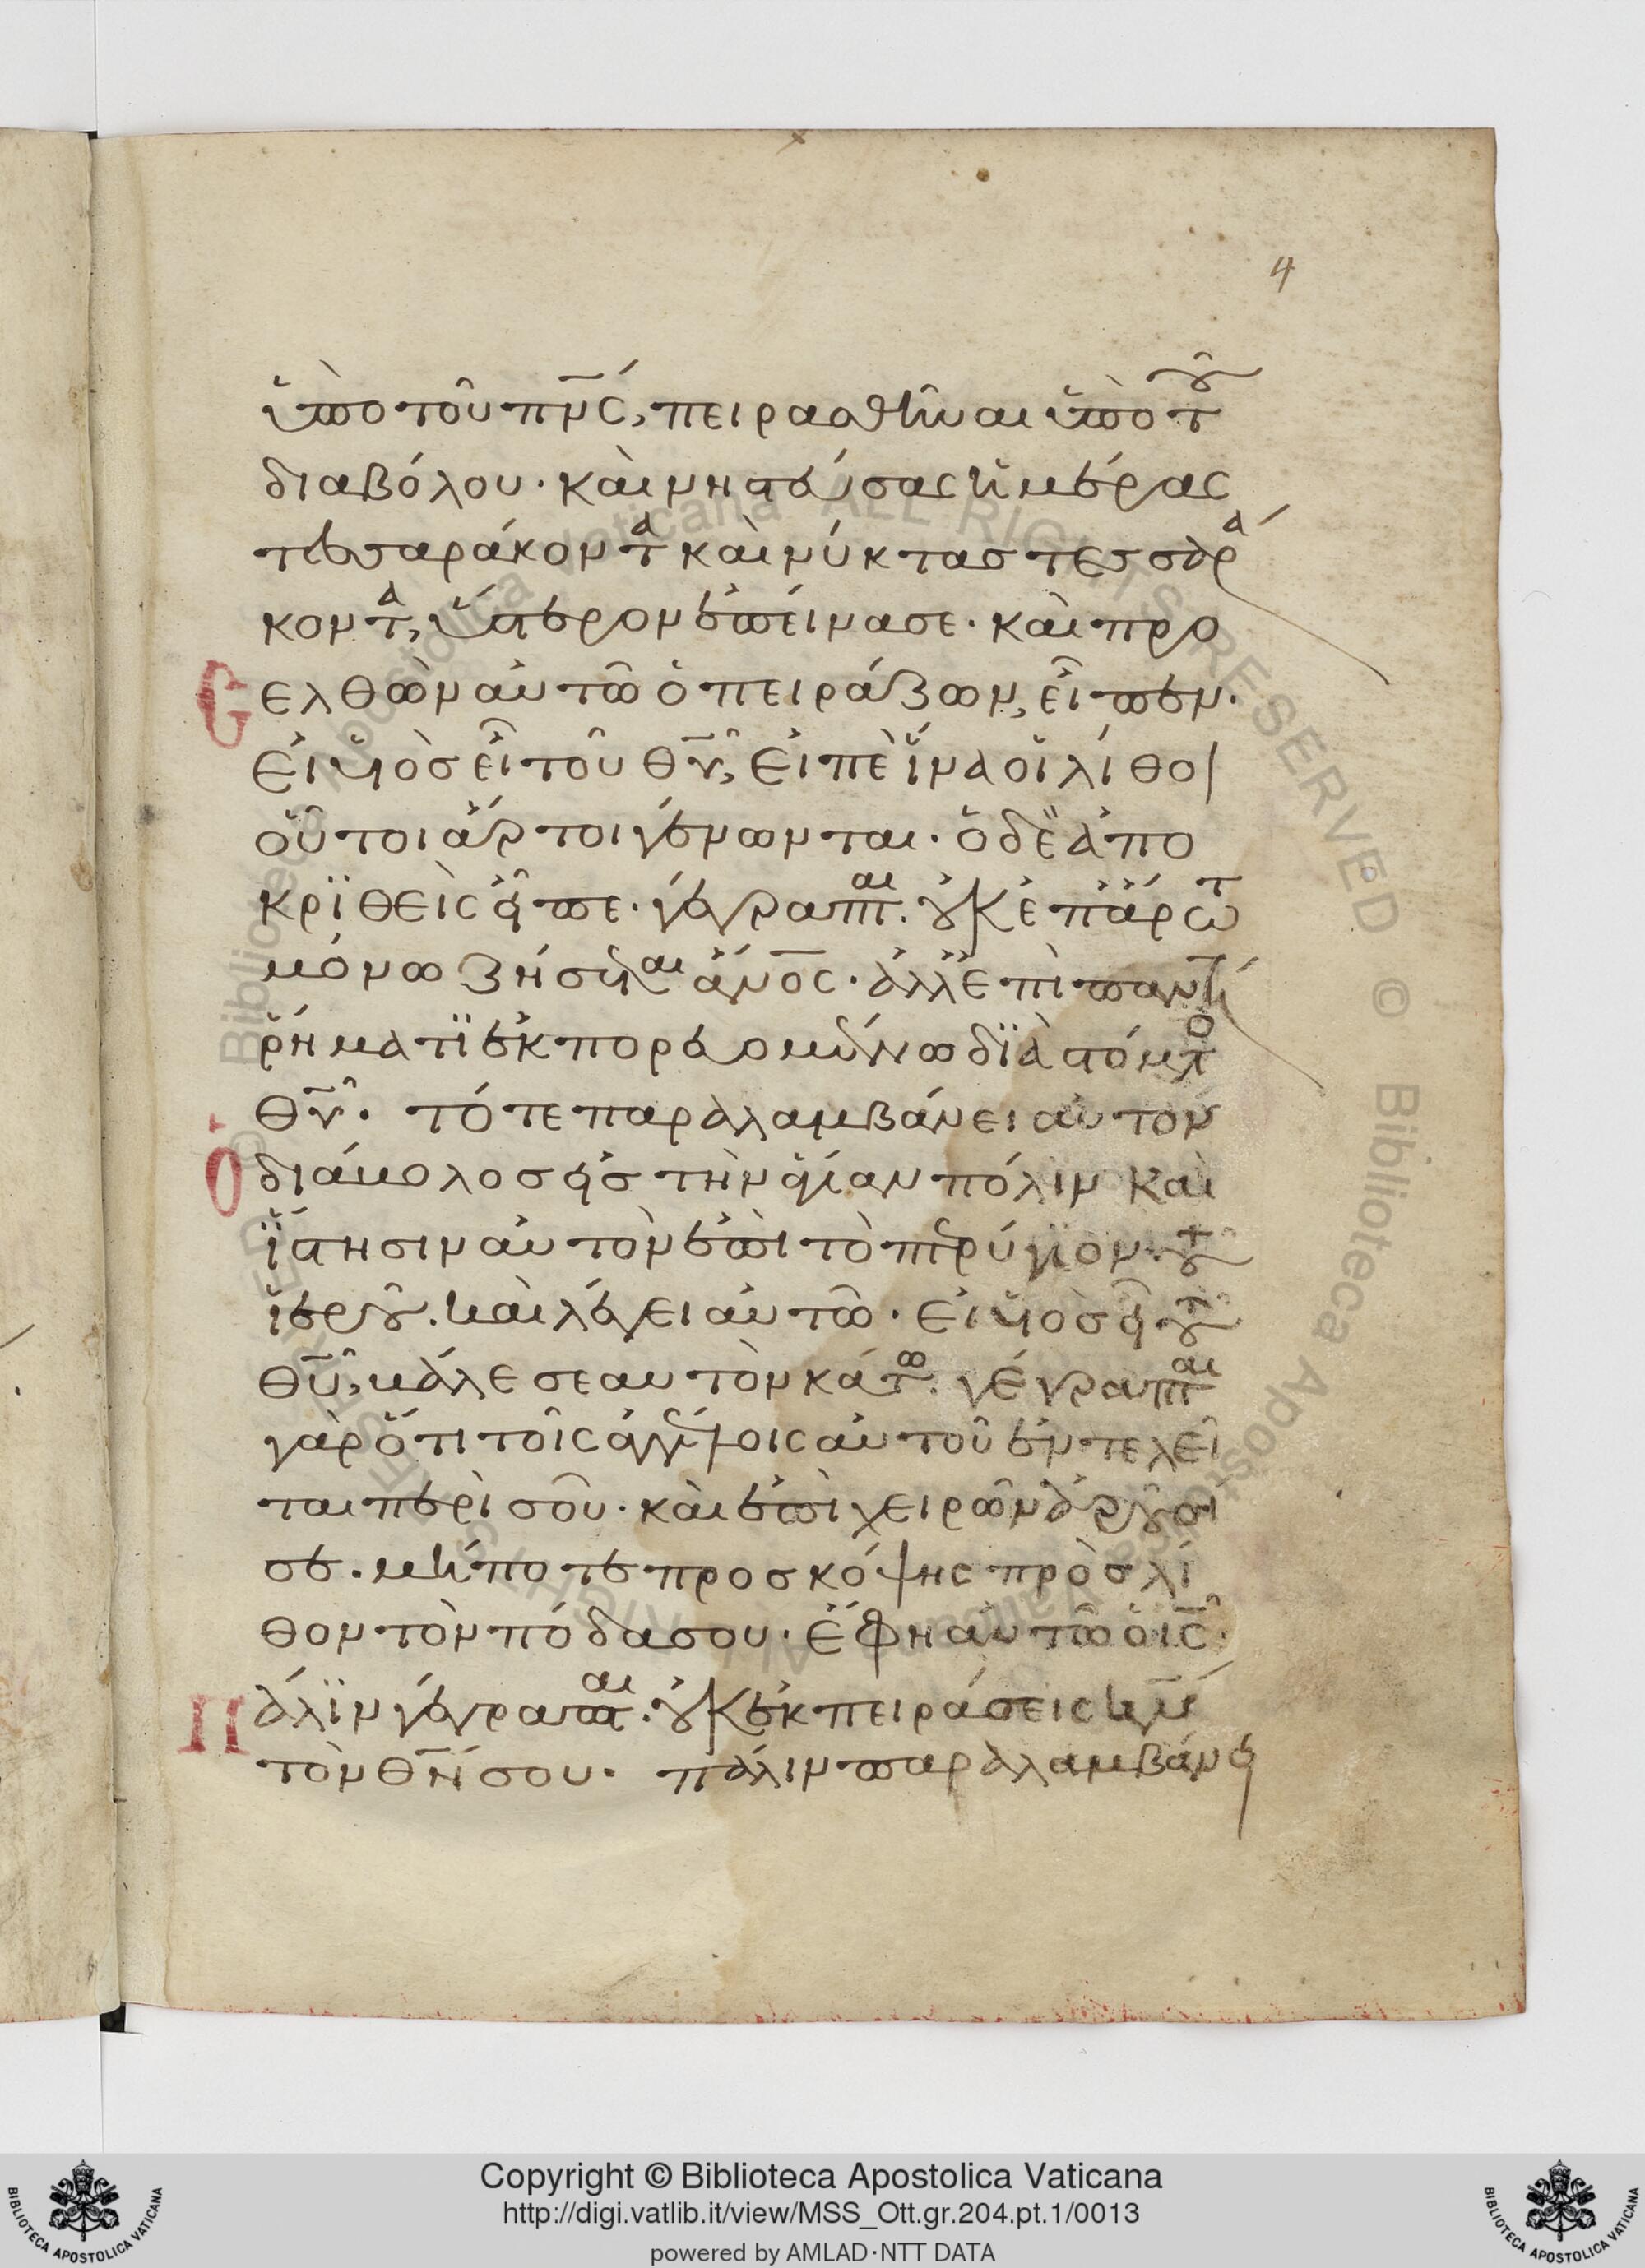 4
ὑπὸ τοῦ πν̅ς, πειρασθῆναι ὑπὸ τοῦ
διαβόλου· καὶ νηστεύσας ἡμέρας
τεσσαράκοντα καὶ νύκτας τεσσαρά
κοντα, ὕστερον ἐπείνασε· καὶ προ
ελθὼν αὐτῶ ὁ πειράζων, εἶπεν·
Εἰ υἱὸς εἶ τοῦ θυ̅, εἰπὲ ἵνα οἱ λίθοι
οὗτοι ἄρτοι γένωνται· ὁ δὲ ἀπο
κριθεὶς εἶπε· γέγραπται· οὐκ ἐπ' ἄρτω
μόνω ζήσεται ἄνο̅ς· ἀλλ' ἐπὶ παντὶ
ῥήματι ἐκπορευομένω διὰ στόματος
θυ̅· τότε παραλαμβάνει αὐτὸν
Ὁ διάβολος εἰς τὴν ἁγίαν πόλιν καὶ
ἵστησιν αὐτὸν ἐπὶ τὸ πτερύγιον τοῦ
ἱεροῦ. καὶ λέγει αὐτῶ· εἰ υἱὸς εἶ τοῦ
θυ̅, βάλε σεαυτὸν κάτω· γέγραπται
γὰρ ὅτι τοῖς ἀγγέλοις αὐτοῦ ἐντελεῖ
ται περὶ σοῦ· καὶ ἐπὶ χειρῶν ἀροῦσί
σε. μήποτε προσκόψης πρὸς λί
θον τὸν πόδα σου· ἔφη αὐτῶ ὁ ις̅·
Πάλιν γέγραπται· οὐκ ἐκπειράσεις κν̅
τὸν θν̅ σου· πάλιν παραλαμβάνει
Copyright © Biblioteca Apostolica Vaticana
http://digi.vatlib.it/view/MSS_Ott.gr.204.pt.1/0013
powered by AMLAD·NTT DATA
BIBLIOTECA APOSTOLICA VATICANA
BIBLIOTECA APOSTOLICA VATICANA